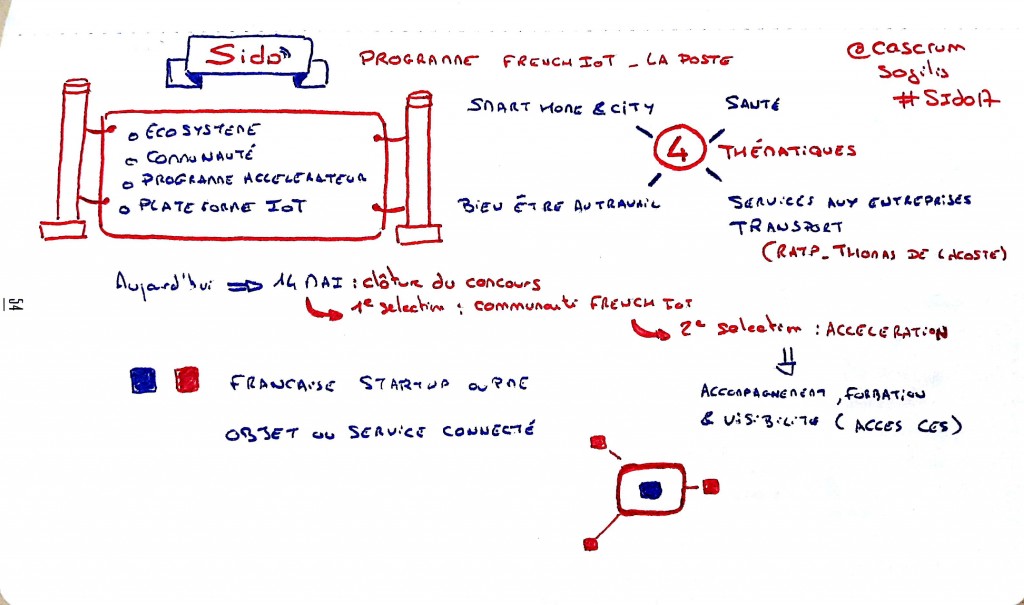 Sido
PROGRAMME FRENCH IOT - LA POSTE
@cascrum
Sogilis
#SIdO17
o ECOSYSTEME
o COMMUNAUTÉ
o PROGRAMME ACCELERATEUR
o PLATEFORME IOT
SMART HOME & CITY
SANTÉ
4 THÉMATIQUES
BIEN ÊTRE AU TRAVAIL
SERVICES AUX ENTREPRISES
TRANSPORT
(RATP - THOMAS DE LACOSTE)
Aujourd'hui ⇒ 14 MAI : clôture du concours
1e selection : communauté FRENCH IOT
2e selection : ACCELERATION
ACCOMPAGNEMENT, FORMATION
& VISIBILITÉ (ACCES CES)
FRANCAISE STARTUP OU PME
OBJET OU SERVICE CONNECTÉ
54